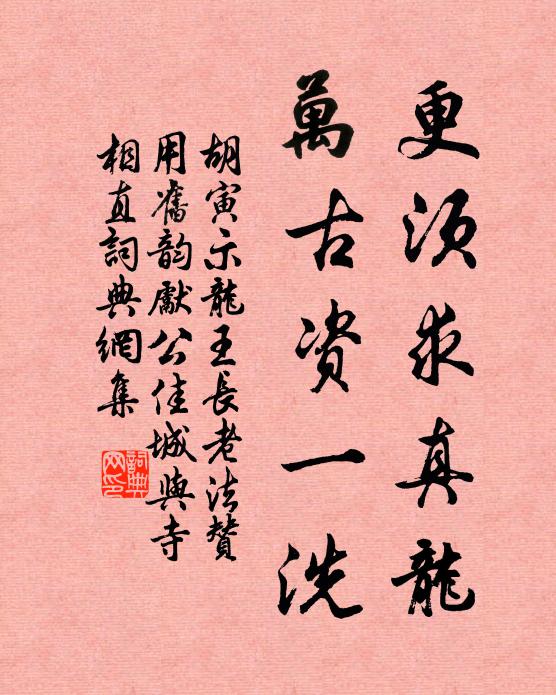 更須求真龍
萬古資一洗
胡寅示龍王長老法贊
用舊韵獻公佳城與寺
相直詞典網集
詞典網印